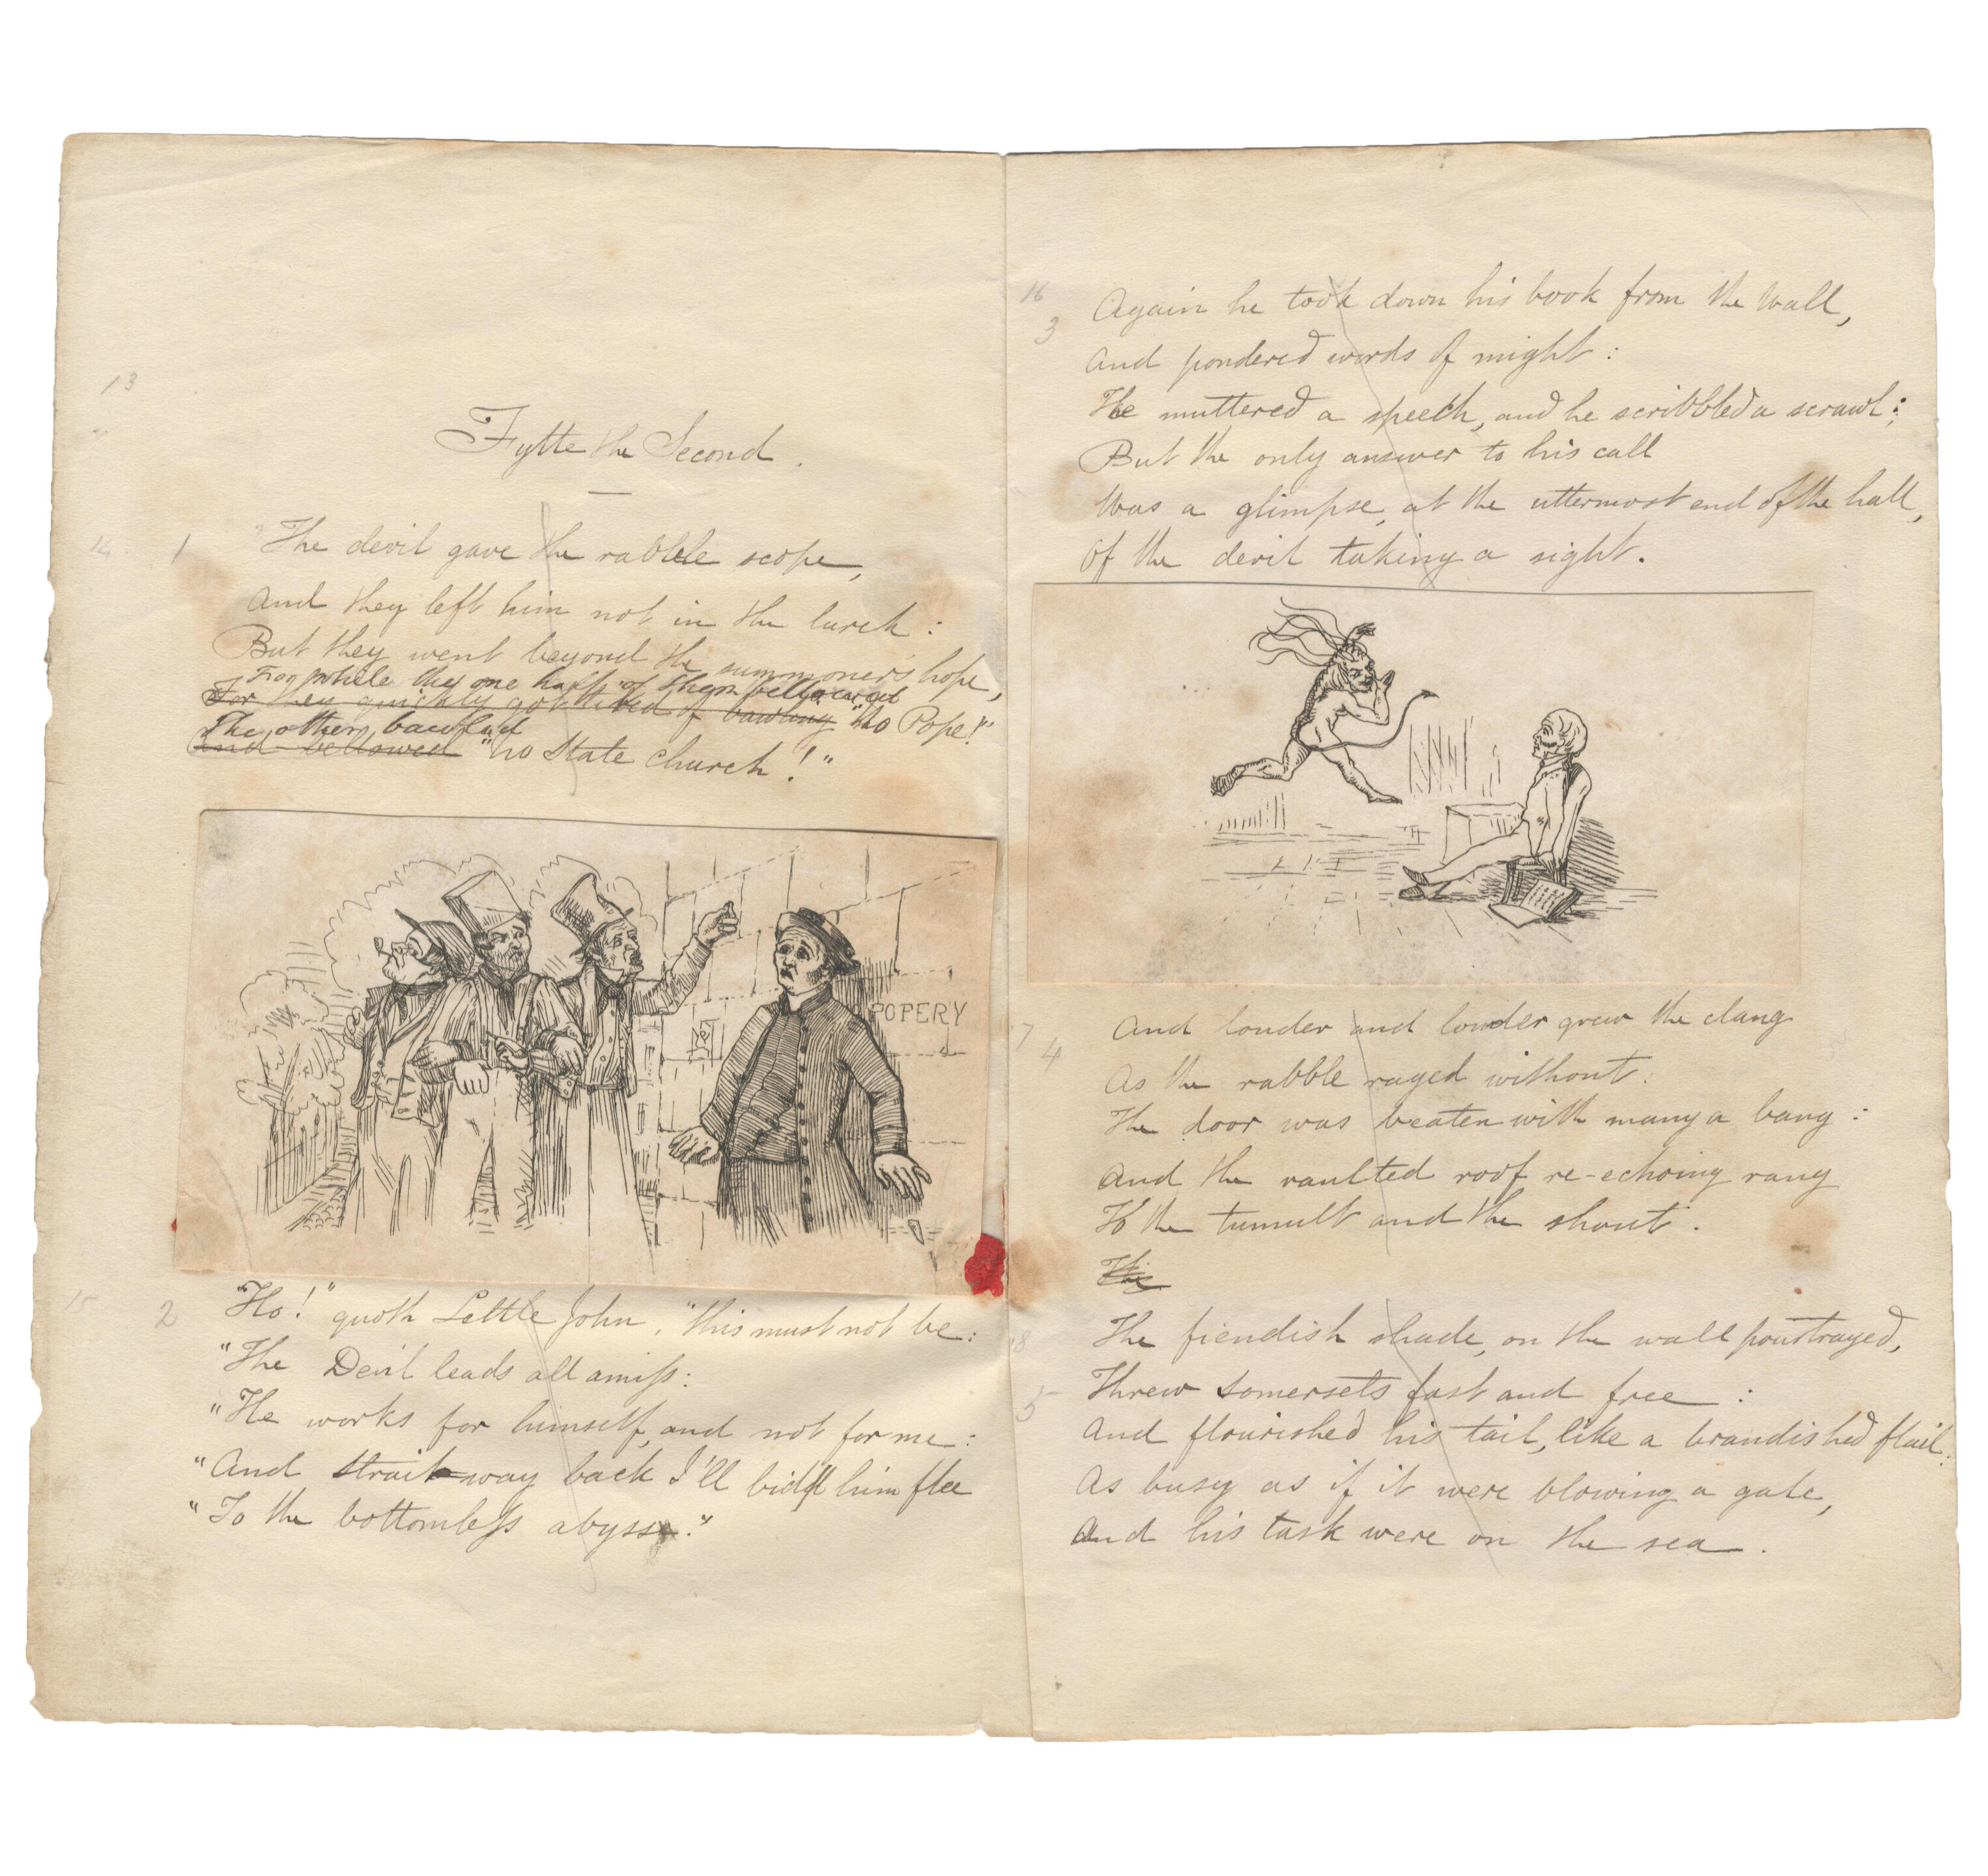 13
Fytte the Second.
14 1 "The devil gave the rabble scope,
And they left him not in the lurch:
But they went beyond the summoner's hope,
For while the one half of them bellowed
For they quickly got tired of bawling "No Pope!"
The others bawled
And bellowed "No State Church!"
POPERY
15 2 "Ho!" quoth Little John, "this must not be:
"The Devil leads all amiss:
"He works for himself, and not for me:
"And straitway back I'll bid him flee
"To the bottomless abyss."
16
3 Again he took down his book from the wall,
And pondered words of might:
He muttered a speech, and he scribbled a scrawl:
But the only answer to his call
Was a glimpse, at the uttermost end of the hall,
Of the devil taking a sight.
7 4 And louder and louder grew the clang
As the rabble raged without:
The door was beaten with many a bang:
And the vaulted roof re-echoing rang
To the tumult and the shout.
The
18 The fiendish shade, on the wall pourtrayed,
5 Threw somersets fast and free:
And flourished his tail, like a brandished flail:
As busy as if it were blowing a gale,
And his task were on the sea.